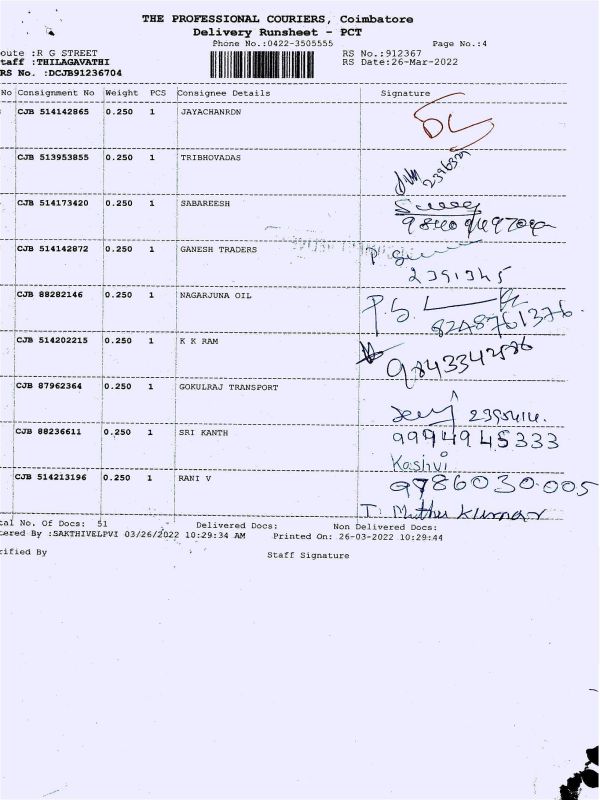 THE PROFESSIONAL COURIERS, Coimbatore
Delivery Runsheet - PCT
Phone No.:0422-3505555 Page No.:4
oute :R G STREET RS No.:912367
taff :THILAGAVATHI RS Date:26-Mar-2022
RS No. :DCJB91236704
No Consignment No Weight PCS Consignee Details Signature
CJB 514142865 0.250 1 JAYACHANRDN
CJB 513953855 0.250 1 TRIBHOVADAS
2396329
CJB 514173420 0.250 1 SABAREESH
CJB 514142872 0.250 1 GANESH TRADERS
2391345
CJB 88282146 0.250 1 NAGARJUNA OIL P.S.
8248761376.
CJB 514202215 0.250 1 K K RAM
CJB 87962364 0.250 1 GOKULRAJ TRANSPORT
CJB 88236611 0.250 1 SRI KANTH 9994945333
Kashvi
CJB 514213196 0.250 1 RANI V 9786030.005
T. Muthu kumar
tal No. Of Docs: 51 Delivered Docs: Non Delivered Docs:
tered By :SAKTHIVELPVI 03/26/2022 10:29:34 AM Printed On: 26-03-2022 10:29:44
rified By Staff Signature